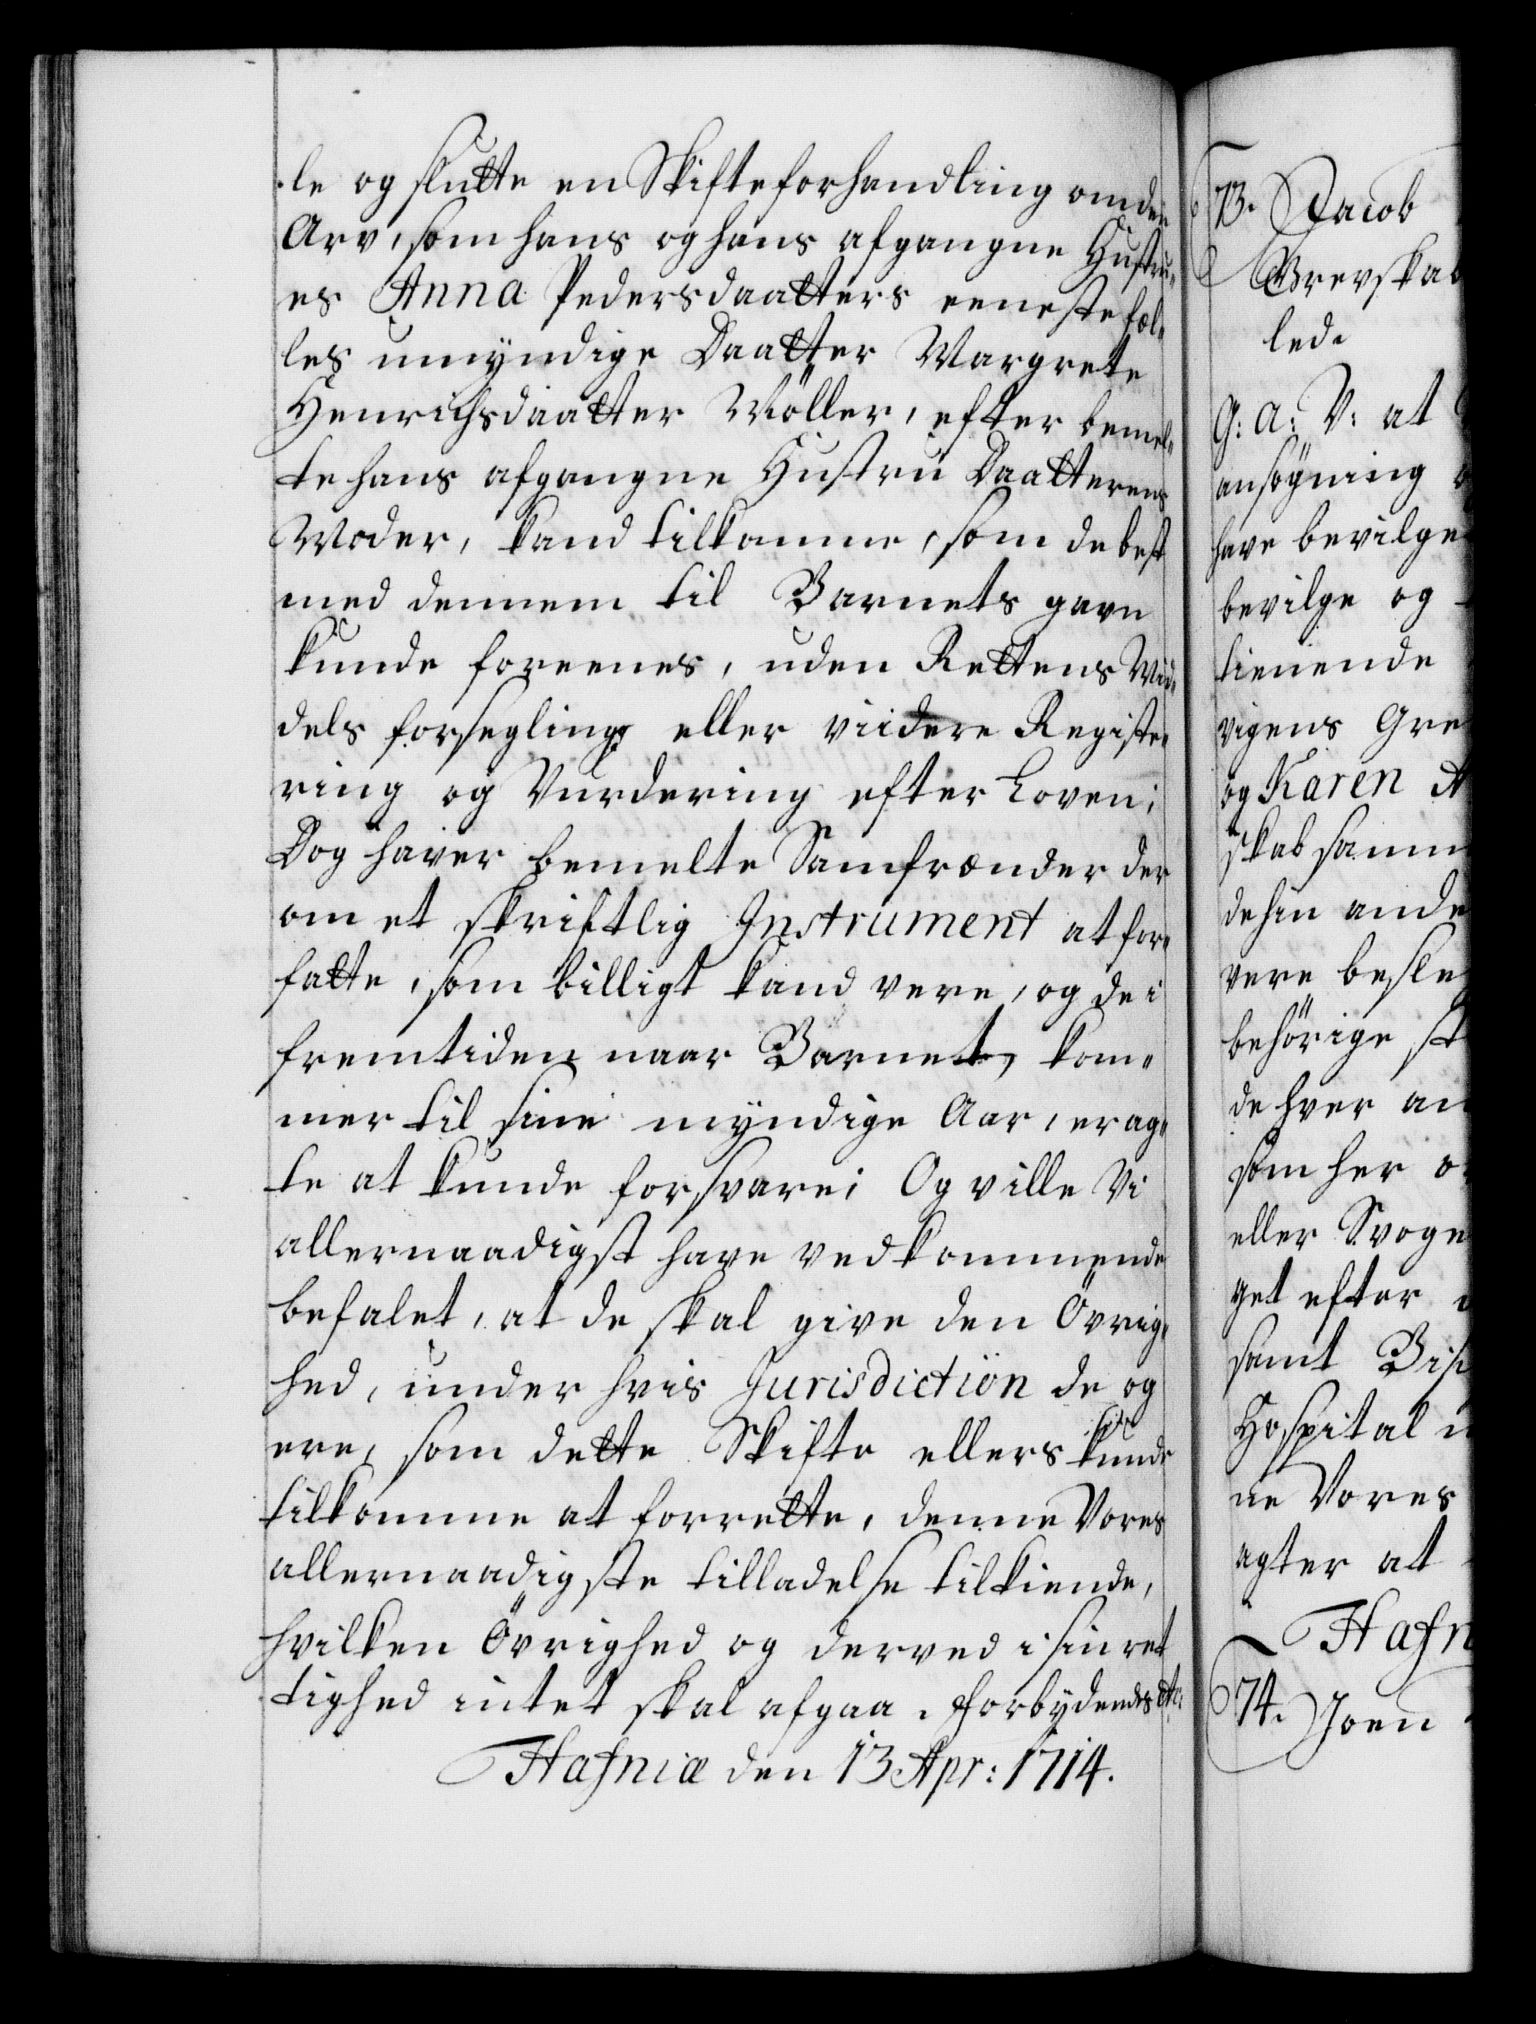 le og slutte en Skifteforhandling om den
Arv, som hans og hans afgangne Hustru„
es Anna Pedersdaatters eeneste fæl„
les umÿndige Daatter Margrete
Henrichsdaatter Möller, efter bemel„
te hans afgangne Hustru Daatterens
Moder, kand tilkomme, som de best
med dennem til Barnets gavn
kunde foreenes, uden Rettens Mid„
dels forsegling eller viidere Registe„
ring og Vurdering efter Loven;
Dog haver bemelte Samfrænder der
om et skriftlig Instrument at for„
fatte, som billigt kand vere, og de i
fremtiden naar Barnet, kom„
mer til sine mÿndige Aar, erag„
te at kunde forsvare; Og ville Vi
allernaadigst have vedkommende
befalet, at de skal give den Övrig„
hed, under hvis Jurisdiction de og
ere, som dette Skifte ellers kunde
tilkomme at forrette, denne Vores
allernaadigste tilladelse tilkiende,
hvilken Övrighed og derved i sin ret
tighed intet skal afgaa. Forbÿdendes etc:
Hafniæ den 13 Apr: 1714.
73. Jacob
Grevskab
led.
G: A: V: at
ansögning
have bevilge
bevilge og
tienende
vigens Gre
og Karen A
skab samm
dehin ande
vere besle
behörige st
de hver an
som her o
eller Svoge
get efter
samt Bis
Hospital
ne Vores
agter at
Hafn
74. Joen